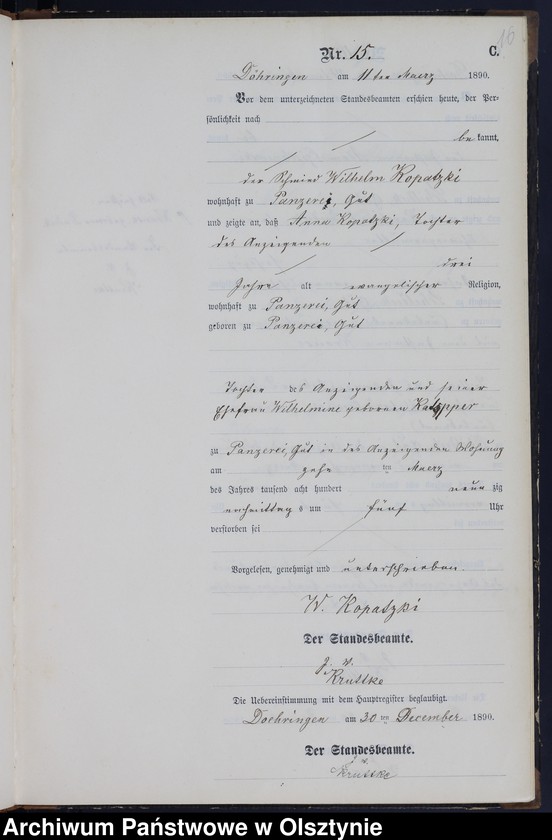 16
Nr. 15. C.
Döhringen am 11ten Maerz 1890.
Vor dem unterzeichneten Standesbeamten erschien heute, der Per-
sönlichkeit nach
bekannt,
der Schmied Wilhelm Kopatzki
wohnhaft zu Panzerei, Gut
und zeigte an, daß Anna Kopatzki, Tochter
des Anzeigenden
drei
Jahre alt evangelischer Religion,
wohnhaft zu Panzerei, Gut
geboren zu Panzerei, Gut
Tochter des Anzeigenden und seiner
Ehefrau Wilhelmine geborenen
zu Panzerei, Gut in des Anzeigenden Wohnung
am zehn ten Maerz
des Jahres tausend acht hundert neun zig
nachmittags um fünf Uhr
verstorben sei
Vorgelesen, genehmigt und unterschrieben.
W. Kopatzki
Der Standesbeamte.
J. V.
Kruttke
Die Uebereinstimmung mit dem Hauptregister beglaubigt.
Doehringen am 30ten December 1890.
Der Standesbeamte.
J. V.
Kruttke
Archiwum Państwowe w Olsztynie